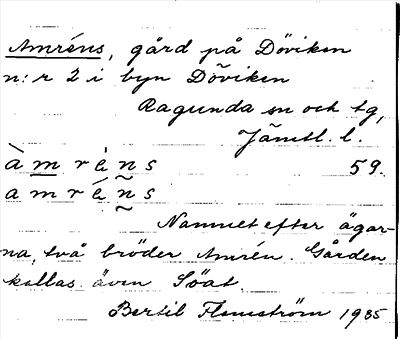 Amréns, gård på Döviken
n:r 2 i byn Döviken
Ragunda sn och tg,
Jämtl. l.
à m r è n s 59.
a m r é n s
Namnet efter ägar-
na, två bröder Amrén. Gården
kallas även Söat.
Bertil Flemström 1935